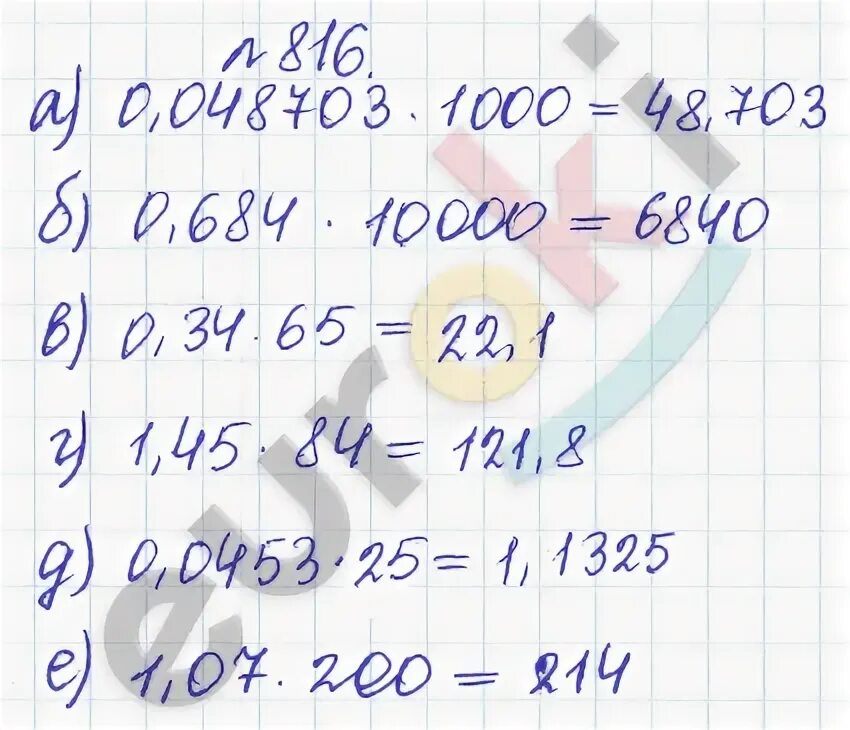 № 816.
а) 0,048703 · 1000 = 48,703
б) 0,684 · 10000 = 6840
в) 0,34 · 65 = 22,1
г) 1,45 · 84 = 121,8
д) 0,0453 · 25 = 1,1325
е) 1,07 · 200 = 214
euroki